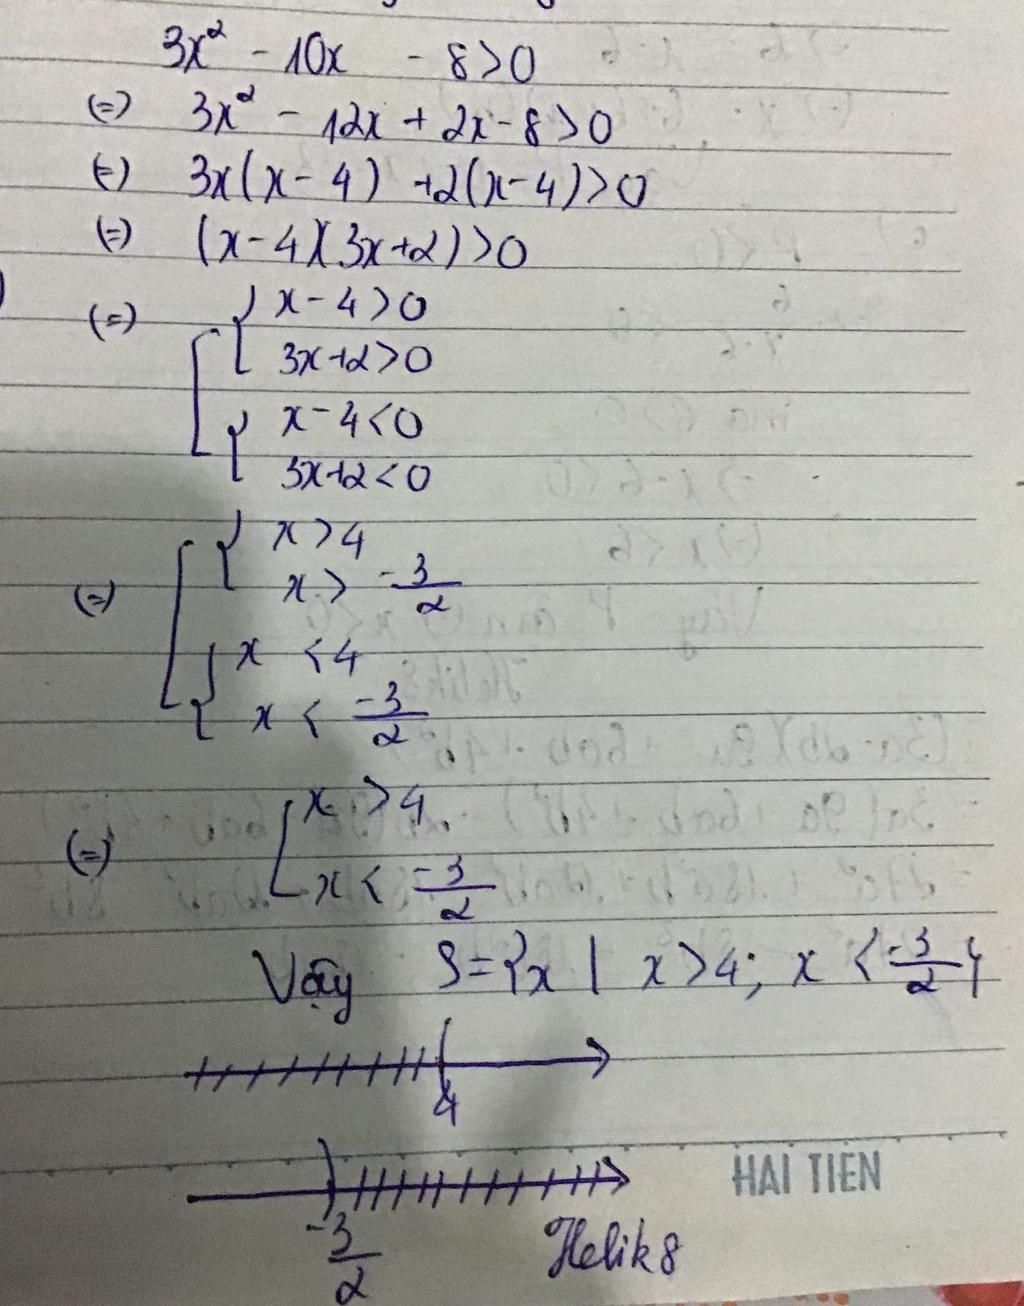 3x² - 10x - 8 > 0
(=) 3x² - 12x + 2x - 8 > 0
(=) 3x(x - 4) + 2(x - 4) > 0
(=) (x - 4)(3x + 2) > 0
(=) [ { x - 4 > 0
3x + 2 > 0
{ x - 4 < 0
3x + 2 < 0
(=) [ { x > 4
x > -3/2
{ x < 4
x < -3/2
(=) [ x > 4
x < -3/2
Vậy S = {x | x > 4; x < -3/2}
4
-3/2
HAI TIEN
Helik8